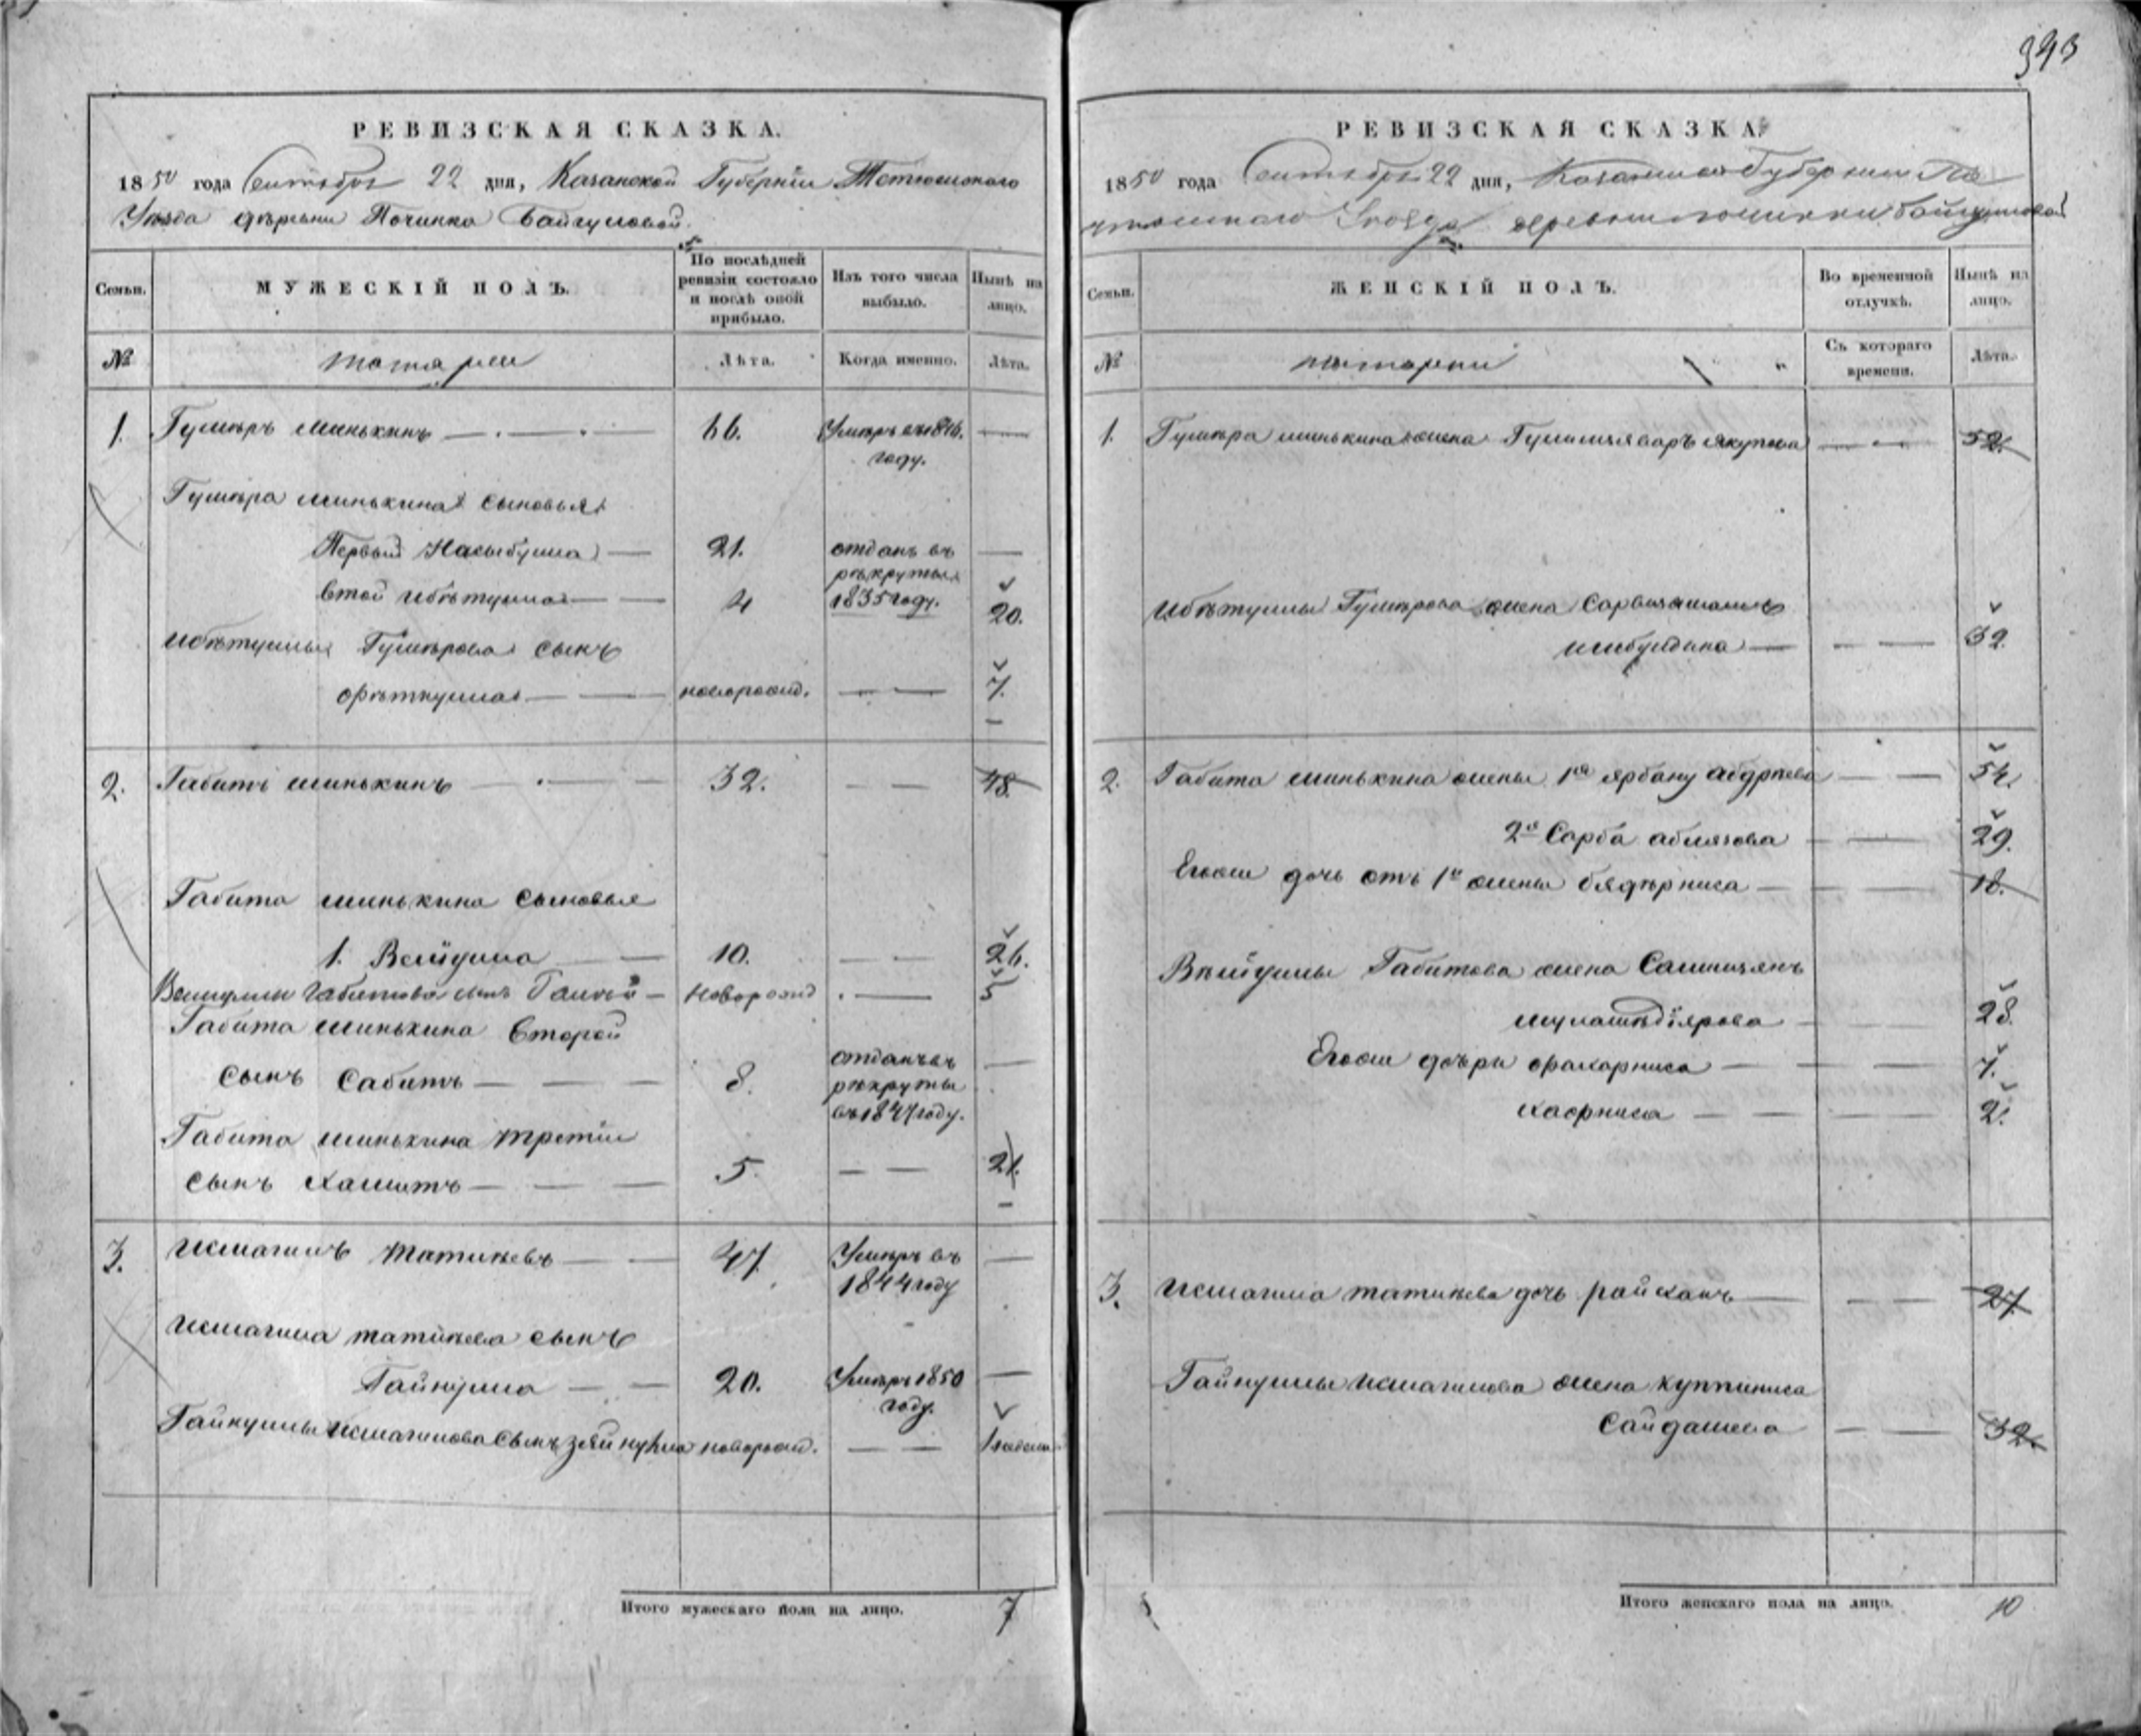 343
РЕВИЗСКАЯ СКАЗКА.
1850 года Сентября 22 дня, Казанской Губернiи Тетюшскаго
Уѣзда деревни Починка Байгуловой.
Семьи.
МУЖЕСКIЙ ПОЛЪ.
По послѣдней ревизiи состояло и послѣ оной прибыло.
Изъ того числа выбыло.
Нынѣ на лицо.
№
татары
Лѣта.
Когда именно.
Лѣта.
1. Гумѣръ Минькинъ — 66. Умѣръ въ 1846. году. —
Гумѣра Минькина сыновья
Первый Насыбулла — 21. отданъ въ рѣкруты —
втой Ибѣтулла — 4 1835 году. 20.
Ибѣтуллы Гумѣрова сынъ
Фѣткулла — новорожд. — 7.
2. Габитъ Минькинъ — 32. — 48.
Габита Минькина сыновья
1. Велйдулла — 10. — 26.
Габитова сынъ — новорожд — 5
Габита Минькина Второй
сынъ Сабитъ — 8. отданъ въ рѣкруты въ 1847 году. —
Габита Минькина третiй
сынъ Хамитъ — 5. — 21.
3. Исмагилъ Матинѣевъ — 47. Умѣръ въ 1844 году —
Исмагила сынъ
Гайнулла — 20. Умѣръ 1850 году. —
Гайнуллы Исмагилова сынъ Зейнулла новорожд. — 1
Итого мужескаго пола на лицо. 7
РЕВИЗСКАЯ СКАЗКА.
1850 года Сентября 22 дня, Казанской Губернiи Те
тюшскаго Уѣзда деревни Починки Байгуловой
Семьи.
ЖЕНСКIЙ ПОЛЪ.
Во временной отлучкѣ.
Нынѣ на лицо.
№
татарки
Съ котораго времени.
Лѣта.
1. Гумѣра Минькина жена Якупова — 52.
Ибѣтуллы Гумѣрова жена
— 32.
2. Габита Минькина жены 1я — 54.
2я Сарба Аблязова — 29.
Егоже дочь отъ 1й жены Бядерниса — 18.
Габитова жена
— 28.
Егоже дочѣри Фрахарниса — 7.
— 2.
3. Исмагила дочь Райхань — 27
Гайнуллы Исмагилова жена
Сайдашева — 32.
Итого женскаго пола на лицо. 10